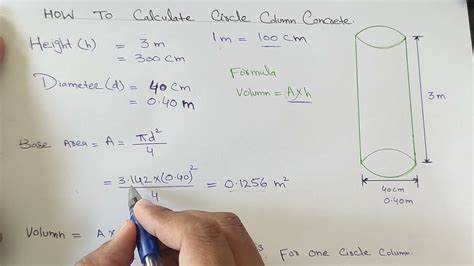 HOW To Calculate Circle Column Concrete.
Height (h) = 3 m
= 300 cm
1m = 100 cm
Diameter (d) = 40 cm
= 0.40 m
Formula
Volumn = A×h
3m
Base Area = A = πd²/4
= 3.142×(0.40)²/4 = 0.1256 m²
40cm
0.40m
Volumn = A×
For one Circle Column.